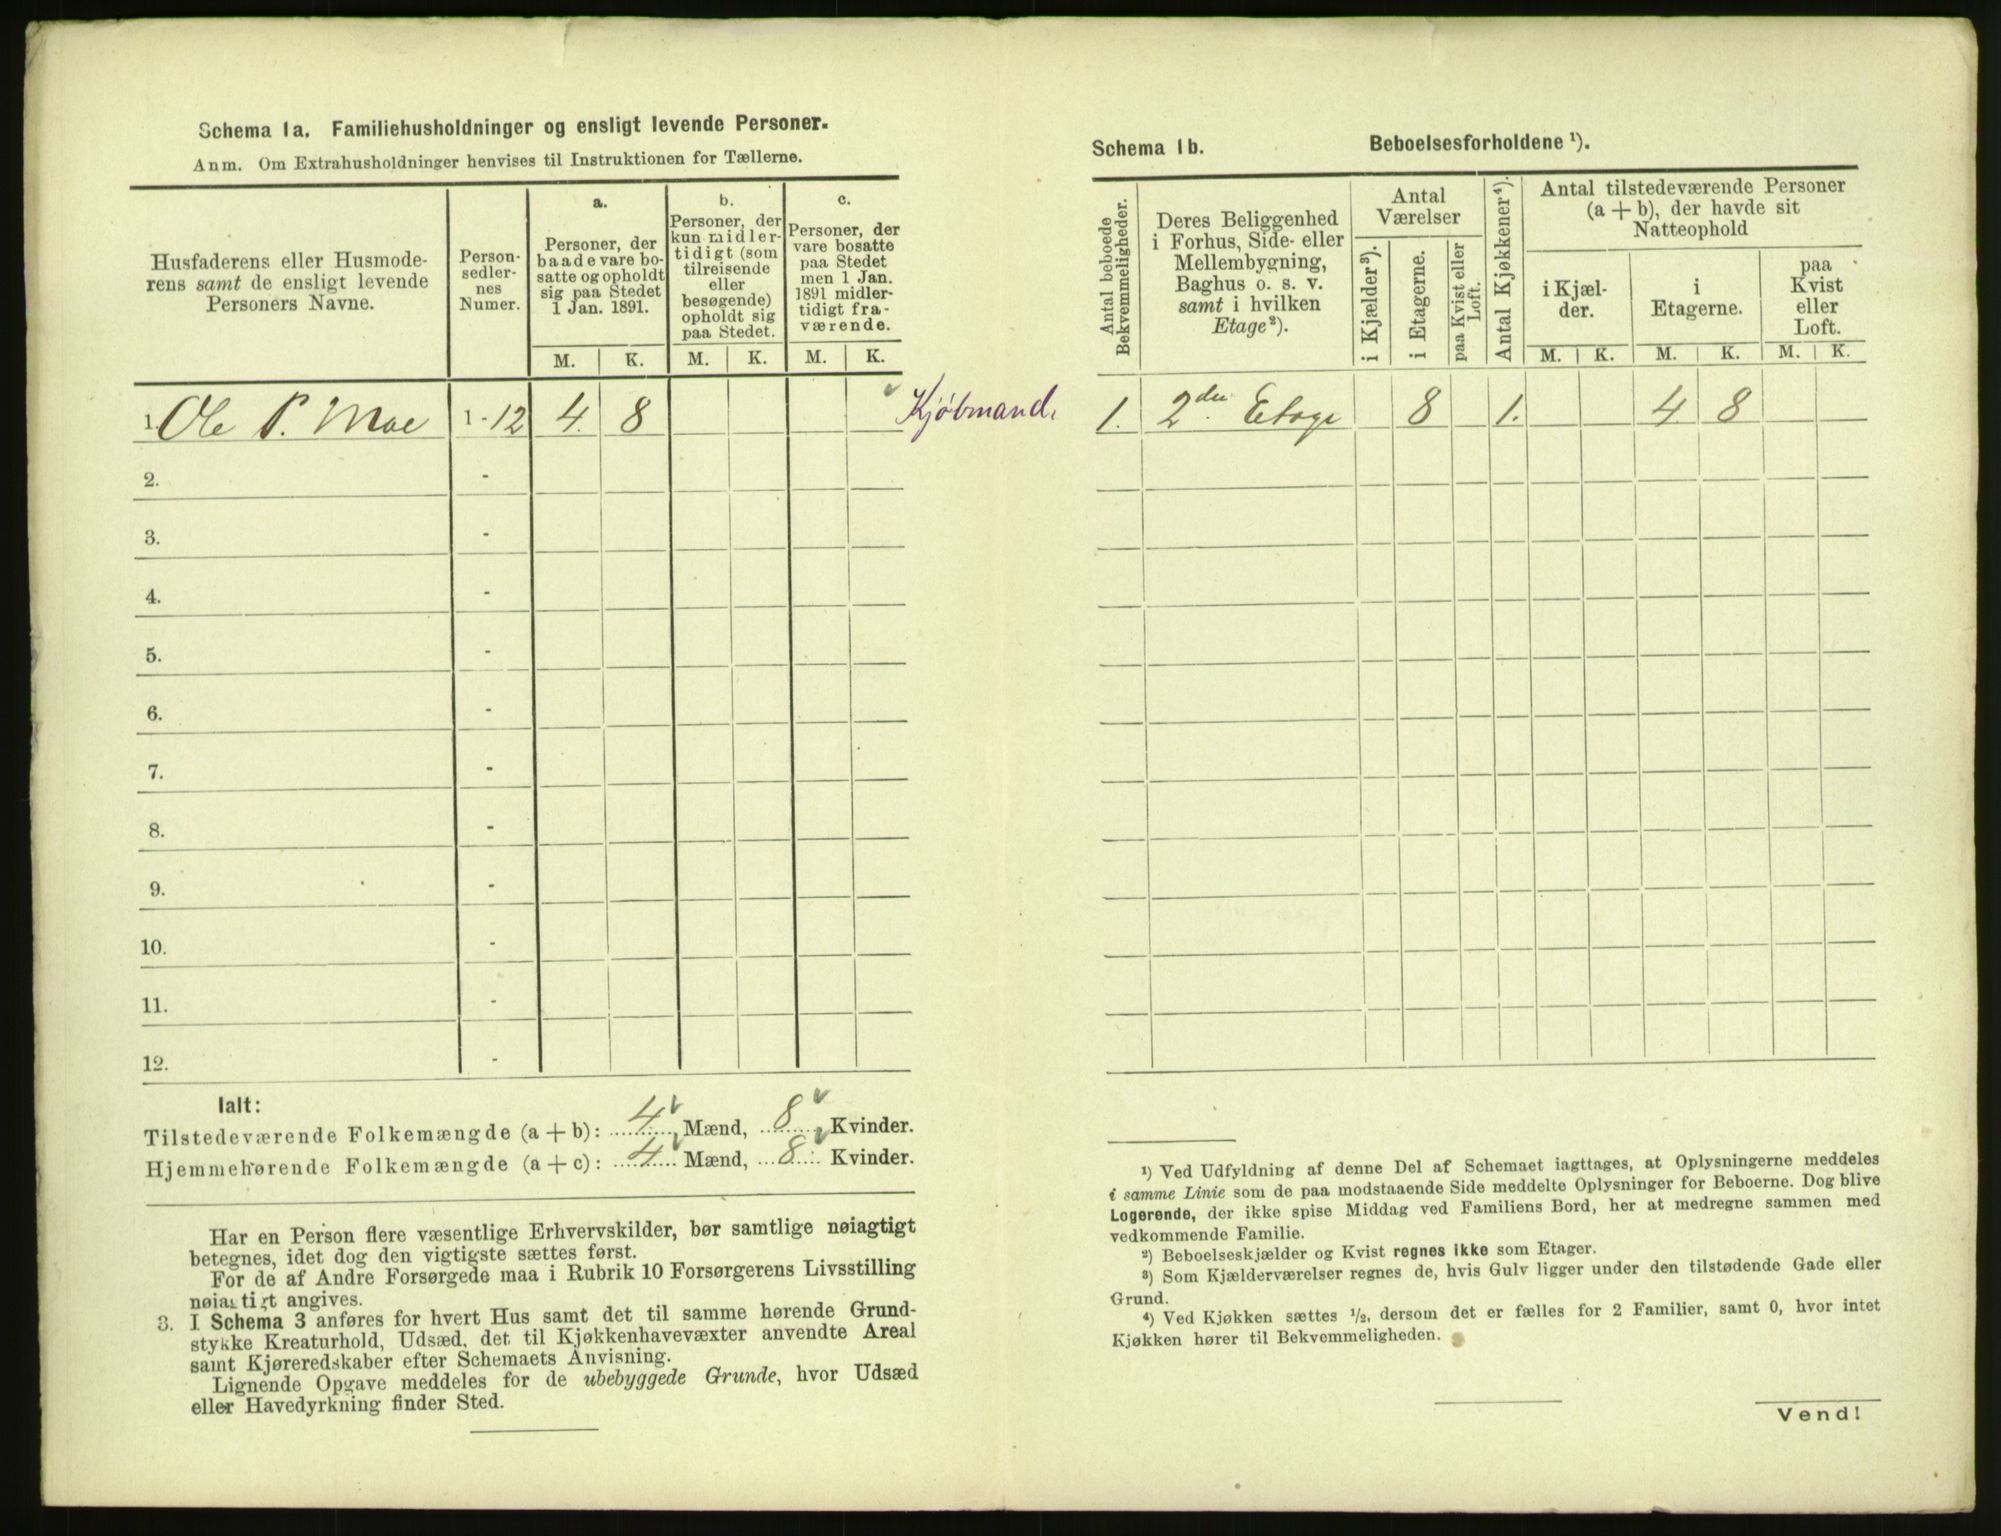 Schema 1a. Familiehusholdninger og ensligt levende Personer.
Anm. Om Extrahusholdninger henvises til Instruktionen for Tællerne.
Husfaderens eller Husmode-
rens samt de ensligt levende
Personers Navne.
Person-
sedler-
nes
Numer.
a.
Personer, der
baade vare bo-
satte og opholdt
sig paa Stedet
1 Jan. 1891.
b.
Personer, der
kun midler-
tidigt (som
tilreisende
eller
besøgende)
opholdt sig
paa Stedet.
c.
Personer, der
vare bosatte
paa Stedet
men 1 Jan.
1891 midler-
tidigt fra-
værende.
M. K. M. K. M. K.
1. Ole P. Moe 1 - 12 4 8 Kjøbmand.
2. -
3. -
4. -
5. -
6. -
7. -
8. -
9. -
10. -
11. -
12. -
Ialt:
Tilstedeværende Folkemængde (a + b): 4 Mænd, 8 Kvinder.
Hjemmehørende Folkemængde (a + c): 4 Mænd, 8 Kvinder.
Har en Person flere væsentlige Erhvervskilder, bør samtlige nøiagtigt
betegnes, idet dog den vigtigste sættes først.
For de af Andre Forsørgede maa i Rubrik 10 Forsørgerens Livsstilling
nøiagtigt angives.
3. I Schema 3 anføres for hvert Hus samt det til samme hørende Grund-
stykke Kreaturhold, Udsæd, det til Kjøkkenhavevæxter anvendte Areal
samt Kjøreredskaber efter Schemaets Anvisning.
Lignende Opgave meddeles for de ubebyggede Grunde, hvor Udsæd
eller Havedyrkning finder Sted.
Schema 1b. Beboelsesforholdene ¹).
Antal beboede
Bekvemmeligheder.
Deres Beliggenhed
i Forhus, Side- eller
Mellembygning,
Baghus o. s. v.
samt i hvilken
Etage ²).
Antal
Værelser
i Kjælder ³).
i Etagerne.
paa Kvist eller
Loft.
Antal Kjøkkener ⁴).
Antal tilstedeværende Personer
(a + b), der havde sit
Natteophold
i Kjæl-
der.
i
Etagerne.
paa
Kvist
eller
Loft.
M. K. M. K. M. K.
1. 2den Etage 8 1. 4 8
¹) Ved Udfyldning af denne Del af Schemaet iagttages, at Oplysningerne meddeles
i samme Linie som de paa modstaaende Side meddelte Oplysninger for Beboerne. Dog blive
Logerende, der ikke spise Middag ved Familiens Bord, her at medregne sammen med
vedkommende Familie.
²) Beboelseskjælder og Kvist regnes ikke som Etager.
³) Som Kjælderværelser regnes de, hvis Gulv ligger under den tilstødende Gade eller
Grund.
⁴) Ved Kjøkken sættes ½, dersom det er fælles for 2 Familier, samt 0, hvor intet
Kjøkken hører til Bekvemmeligheden.
Vend!